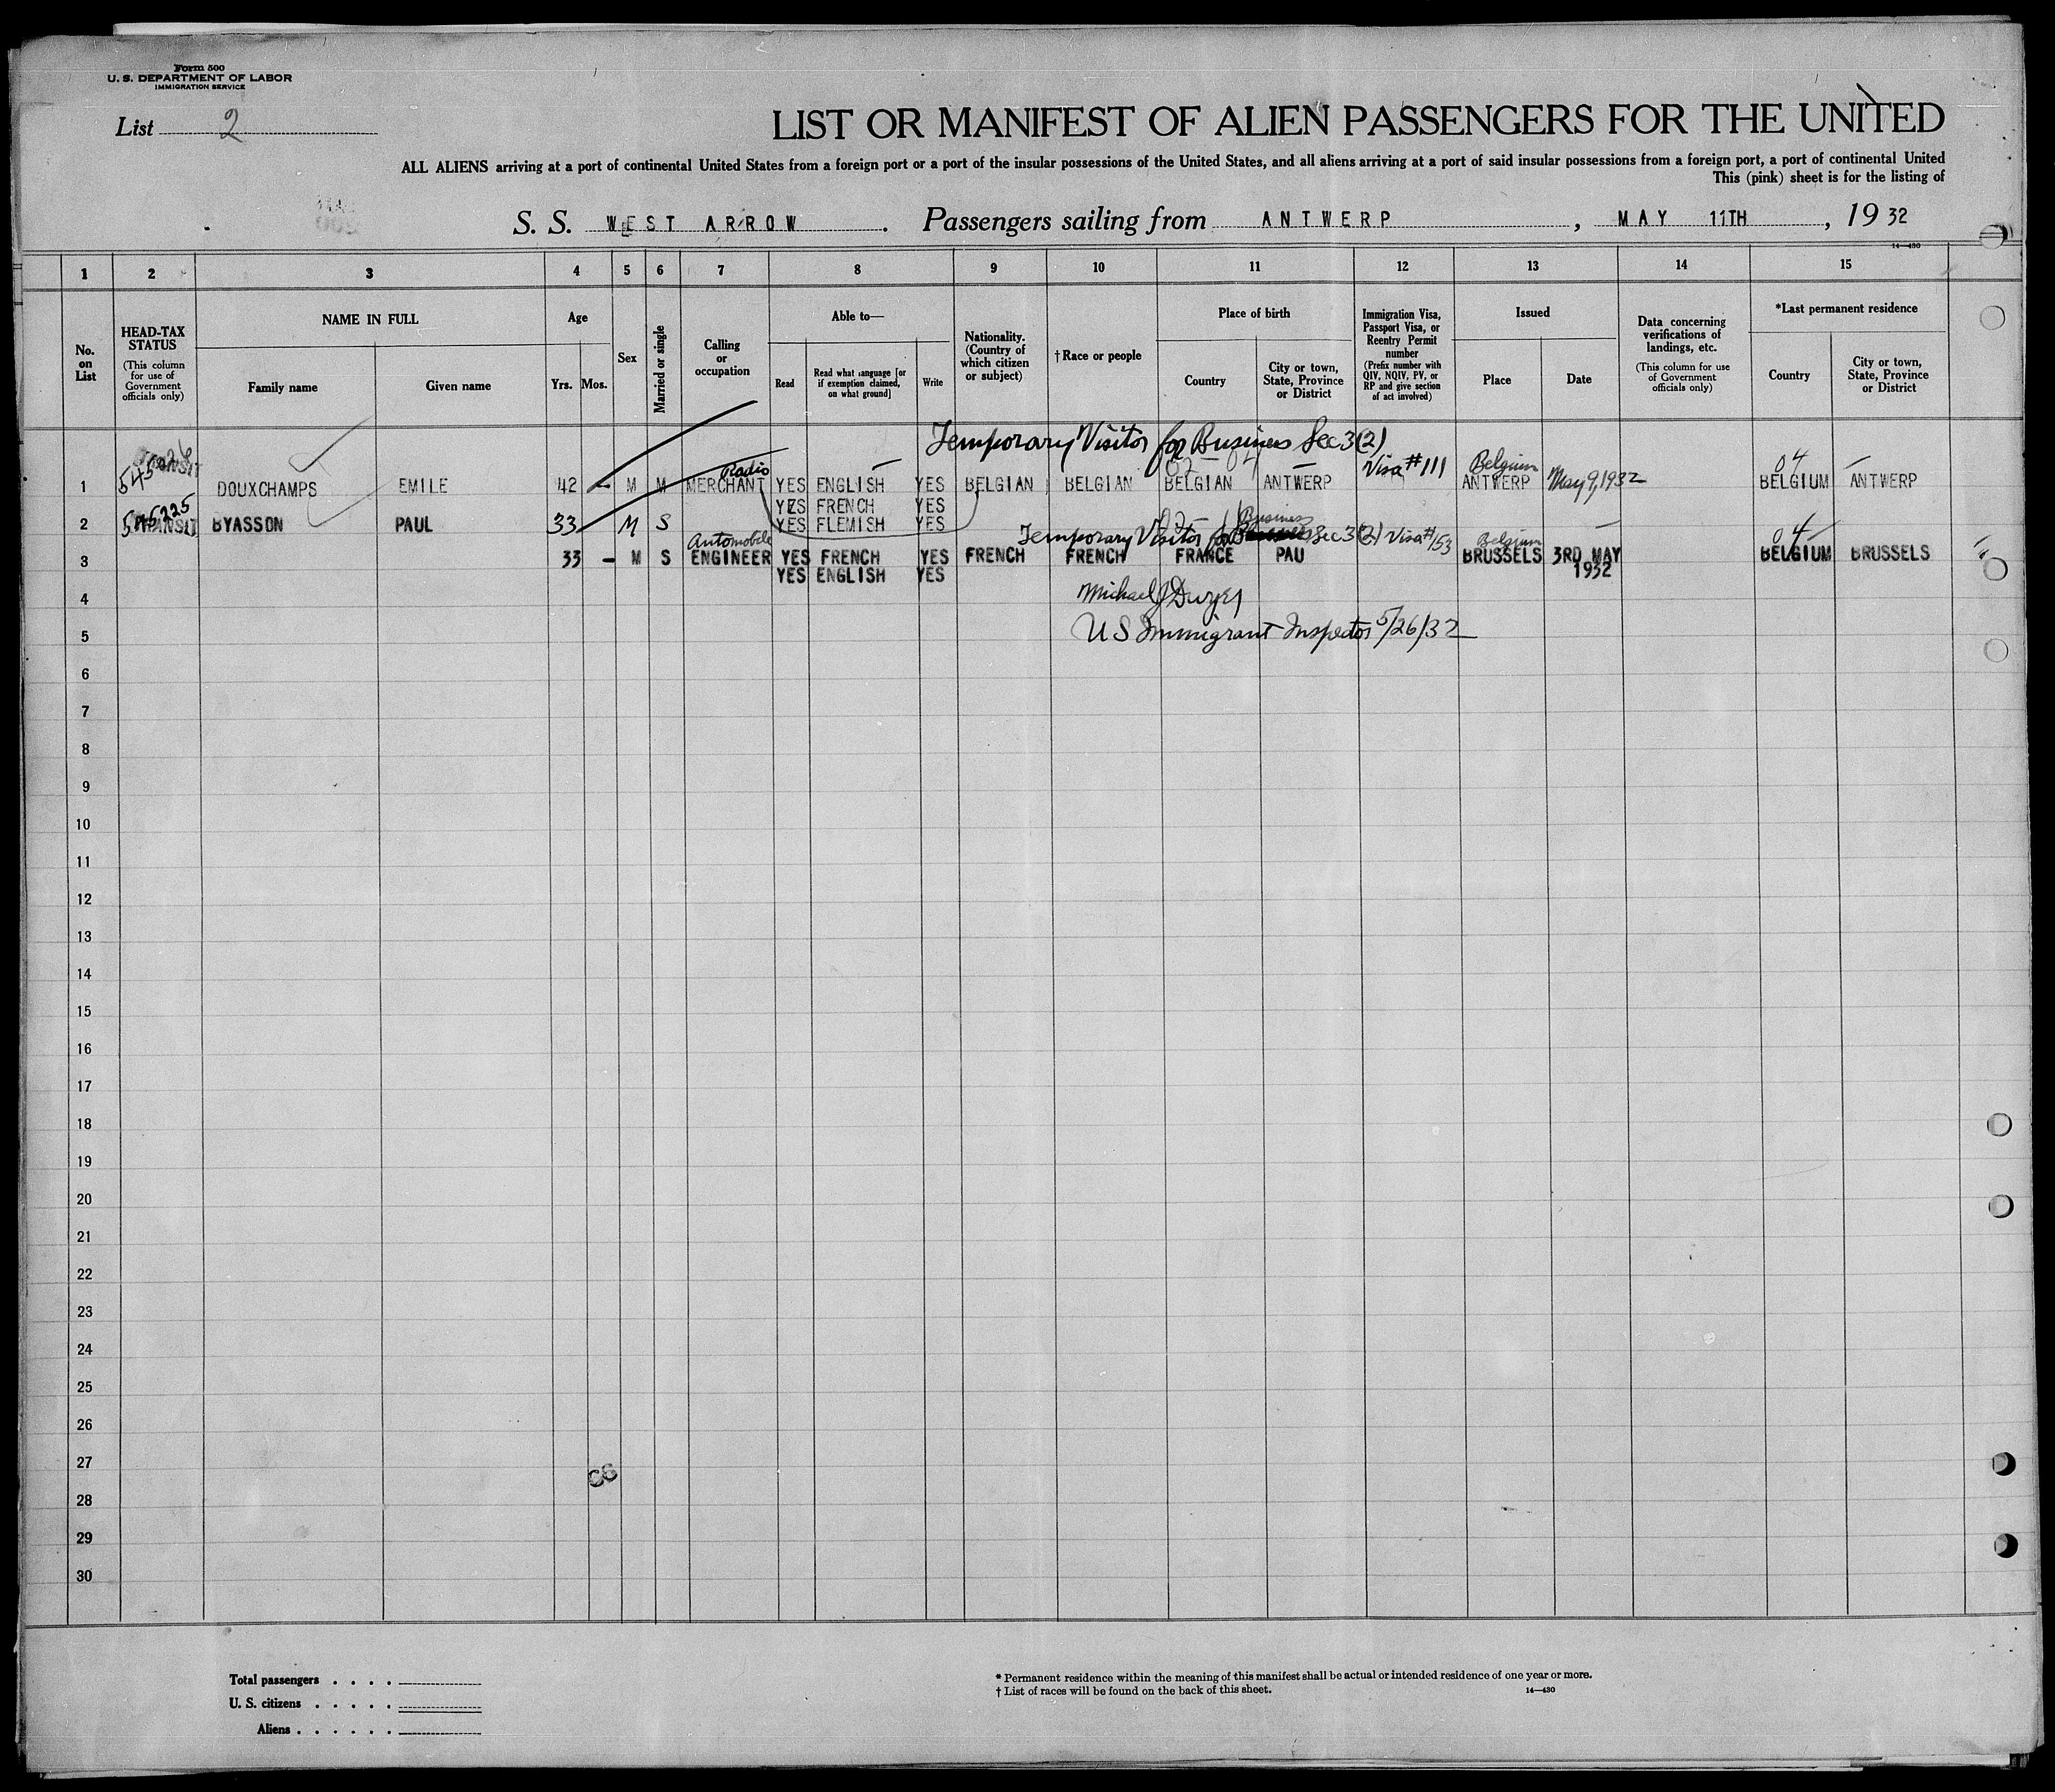 Form 500
U. S. DEPARTMENT OF LABOR
IMMIGRATION SERVICE
List 2
LIST OR MANIFEST OF ALIEN PASSENGERS FOR THE UNITED
ALL ALIENS arriving at a port of continental United States from a foreign port or a port of the insular possessions of the United States, and all aliens arriving at a port of said insular possessions from a foreign port, a port of continental United
This (pink) sheet is for the listing of
S. S. WEST ARROW. Passengers sailing from ANTWERP, MAY 11TH, 1932
14—430
1 2 3 4 5 6 7 8 9 10 11 12 13 14 15
No. on List
HEAD-TAX STATUS
(This column for use of Government officials only)
NAME IN FULL
Family name
Given name
Age
Yrs. Mos.
Sex
Married or single
Calling or occupation
Able to—
Read
Read what language [or if exemption claimed, on what ground]
Write
Nationality. (Country of which citizen or subject)
†Race or people
Place of birth
Country
City or town, State, Province or District
Immigration Visa, Passport Visa, or Reentry Permit number
(Prefix number with QIV, NQIV, PV, or RP and give section of act involved)
Issued
Place
Date
Data concerning verifications of landings, etc.
(This column for use of Government officials only)
*Last permanent residence
Country
City or town, State, Province or District
Temporary Visitor for Business Sec 3(2)
Radio Visa #111 Belgium 04
1 TRANSIT DOUXCHAMPS EMILE 42 - M M MERCHANT YES ENGLISH YES BELGIAN BELGIAN BELGIAN ANTWERP ANTWERP May 9, 1932 BELGIUM ANTWERP
YES FRENCH YES
2 545225 TRANSIT BYASSON PAUL 33 M S YES FLEMISH YES
Automobile Temporary Visitor for Business Sec 3(2) Visa #153 Belgium 04
3 33 - M S ENGINEER YES FRENCH YES FRENCH FRENCH FRANCE PAU BRUSSELS 3RD MAY BELGIUM BRUSSELS
YES ENGLISH YES 1932
4 Michael J Dwyer
5 US Immigrant Inspector 5/26/32
6
7
8
9
10
11
12
13
14
15
16
17
18
19
20
21
22
23
24
25
26
27
28
29
30
Total passengers . . . .
U. S. citizens . . . . .
Aliens . . . . . .
* Permanent residence within the meaning of this manifest shall be actual or intended residence of one year or more.
† List of races will be found on the back of this sheet.
14—430